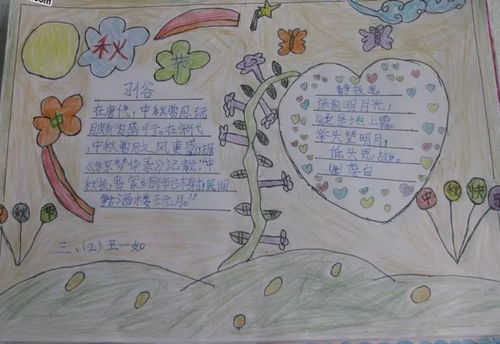 秋
节
中
习俗
在唐代，中秋赏月、玩
月颇为盛行。在宋代
，中秋赏月之风更盛，据
《东京梦华录》记载："中
秋夜，贵家结饰台榭，民间
争占酒楼玩月。"
三、(2) 王一如
静夜思
床前明月光，
疑是地上霜。
举头望明月，
低头思故乡。
李白
中 秋 节
中 秋 快